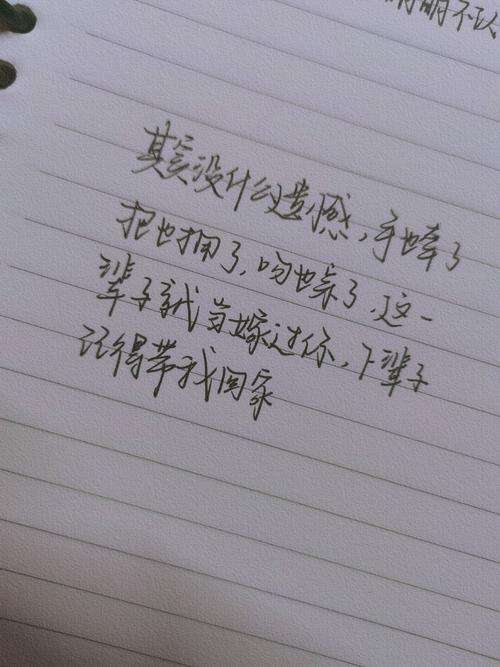 明不以
其实没什么遗憾，手也牵了
抱也拥了，吻也亲了，这一
辈子就当嫁过你，下辈子
记得带我回家